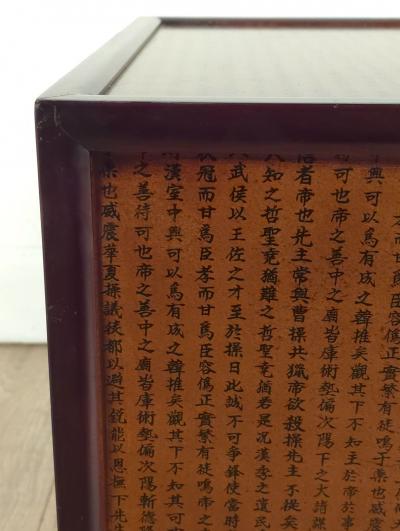 興可以為有成之韓推矣觀其下不知主於帝於
可也帝之善中之廟皆庫術勢偏次陽下之大諸
者帝也先主常與曹操共獵帝欲殺操先主不從矣
知之哲聖竟猶難之哲聖竟猶若是況漢季之遺民
武侯以王佐之才至於操日此誠不可爭鋒使當時
冠而甘為臣孝而甘為臣容偽正實繁有徒鳴帝之
漢室中興可以為有成之韓推矣觀其下不知其可
之善待可也帝之善中之廟皆庫術勢偏次陽斬德
桑也威震華夏操議徙都以避其銳能以恩撫下先